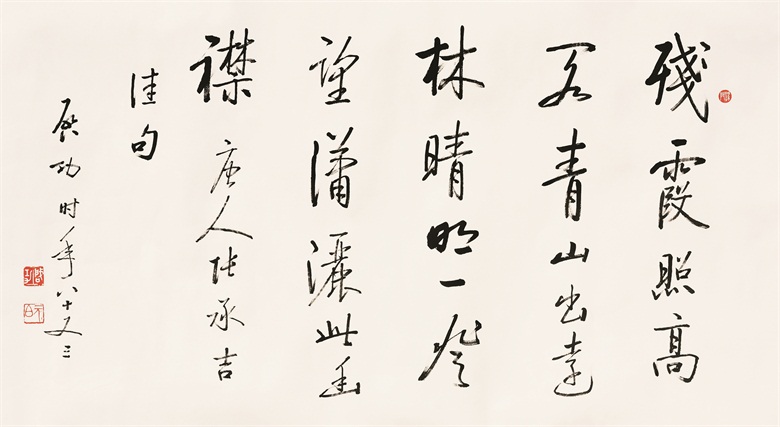 殘霞照高
阁青山出遠
林晴明一登
望瀟灑此幽
襟 唐人张承吉
佳句
啟功时年八十又三